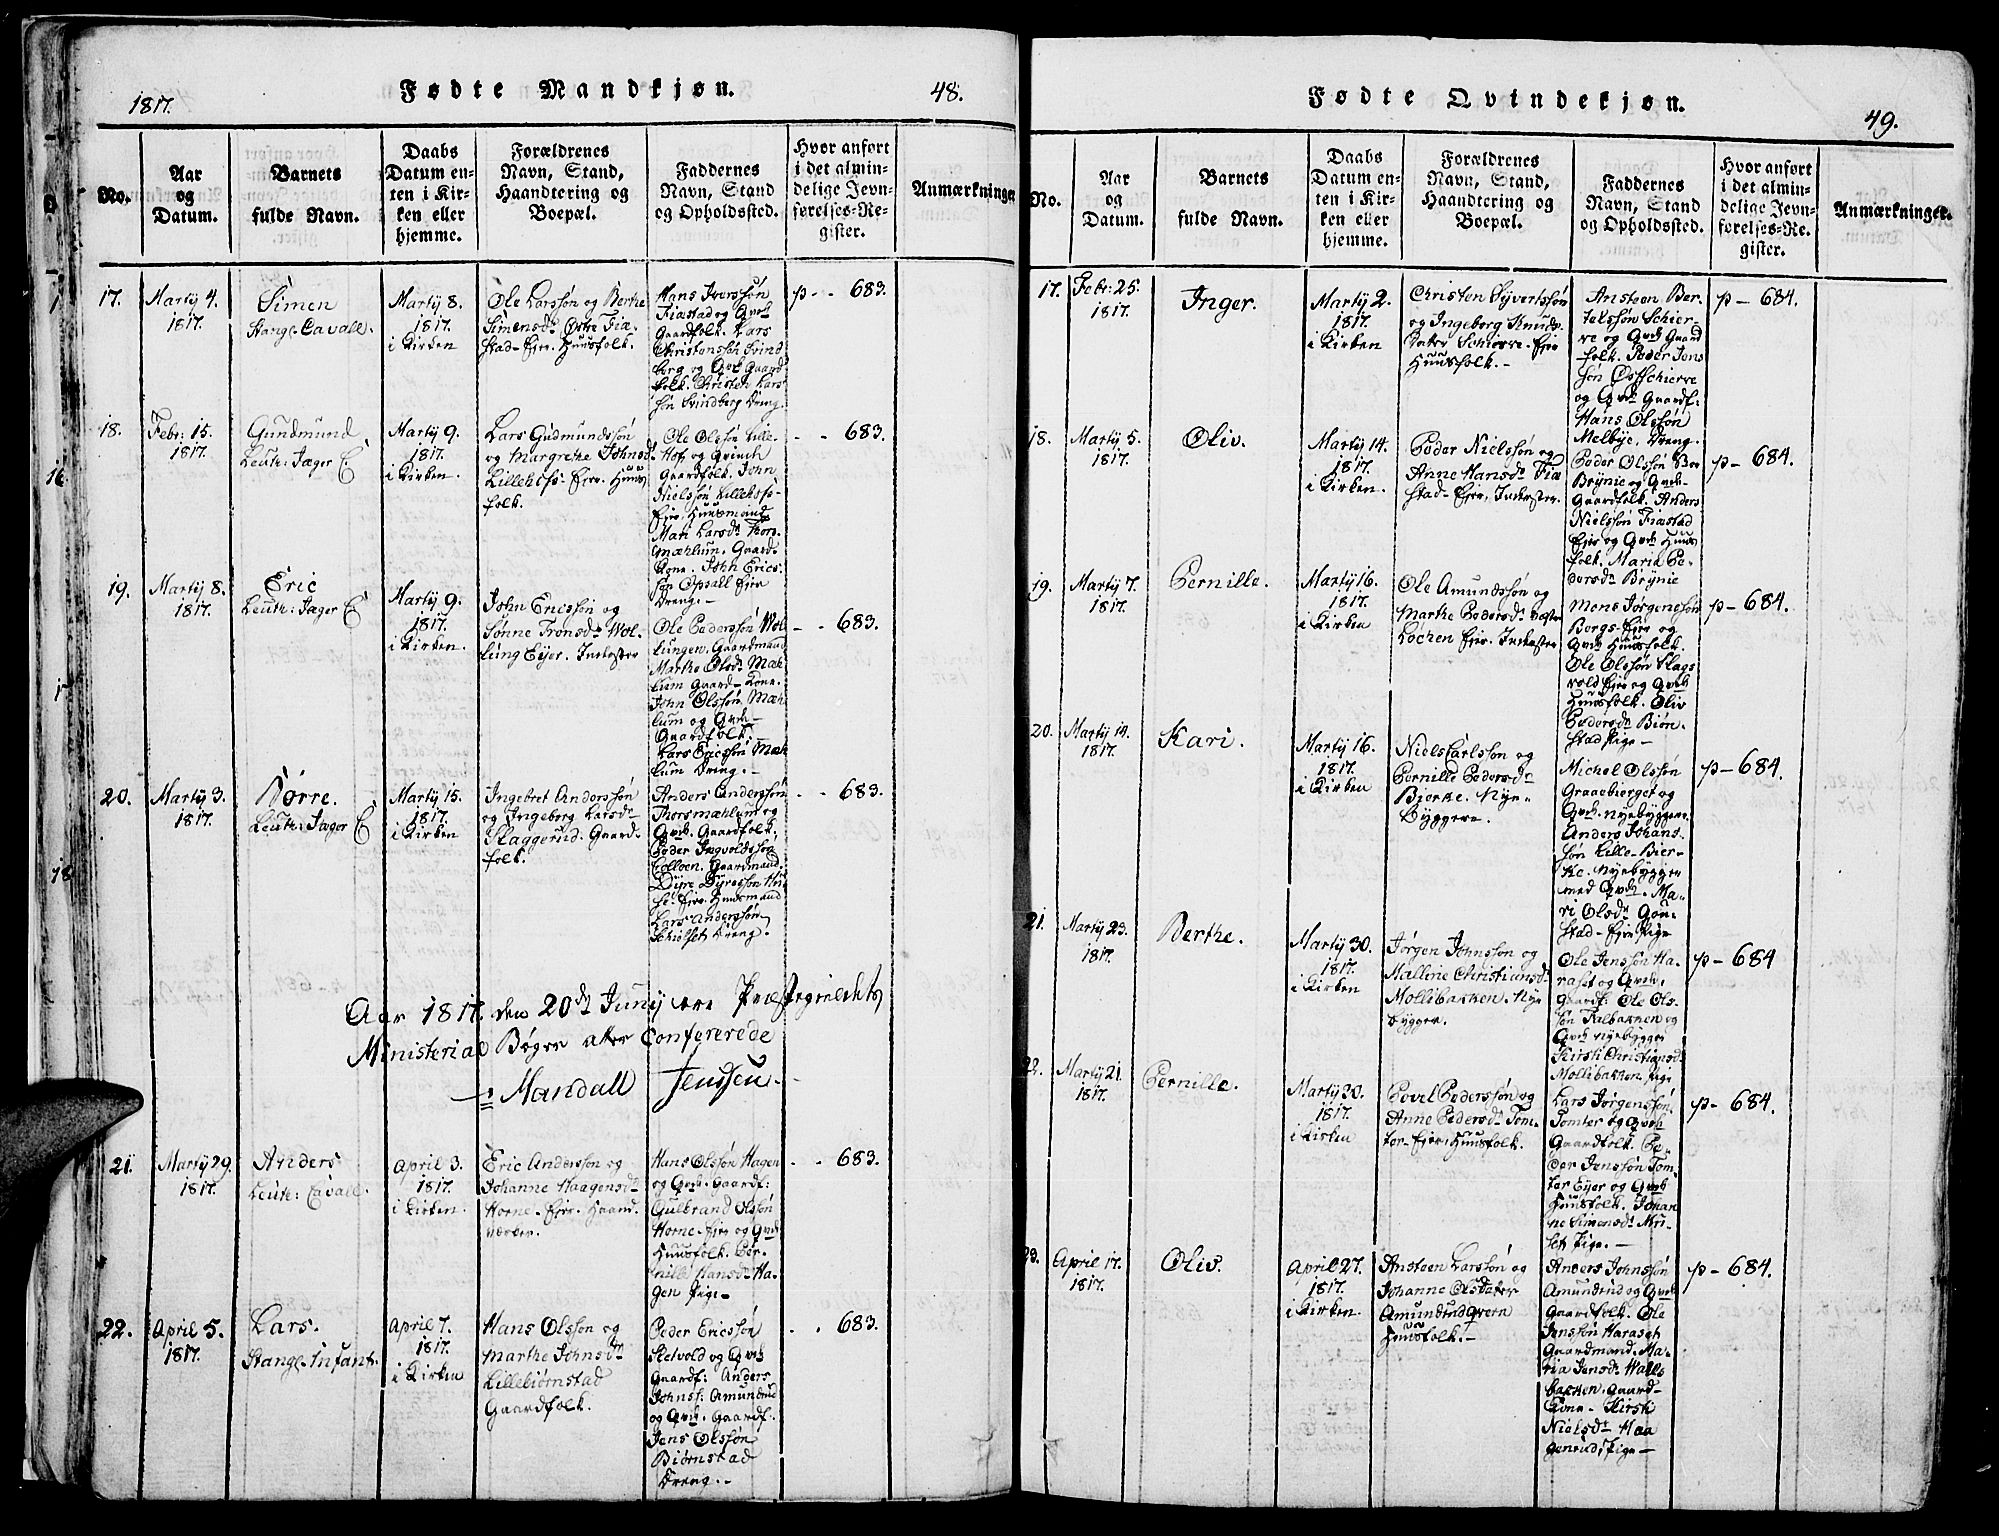 1817.
Fødte Mandkjøn.
48.
No.
Aar
og
Datum.
Barnets
fulde Navn.
Daabs
Datum en-
ten i Kir-
ken eller
hjemme.
Forældrenes
Navn, Stand,
Haandtering og
Boepæl.
Faddernes
Navn, Stand
og Opholdssted.
Hvor anført
i det almin-
delige Jevn-
førelses-Re-
gister.
Anmærkninger
17.
Martÿ 4.
1817.
Simen
Stange Cavall.
Martÿ 8.
1817.
i Kirken
Ole Larssøn og Berthe
Simensdr Østre Fia-
stad-Ejer. Huusfolk.
Hans Iverssøn
Fiastad og Qvde
Gaardfolk. Lars
Christenssøn Svind
berg og Qvde Gaard
folk. Christen Lars
søn Svindberg Dreng.
p - - 683.
18.
Febr: 15.
1817.
Gundmund
Leuth: Jæger C
Martÿ 9.
1817.
i Kirken.
Lars Gudmundssøn
og Margrethe Johnsdr
Lillehofs-Ejer. Huus
folk.
Ole Olssøn Lille-
Hof og Qvinde
Gaardfolk. John
Nielssøn Lillehofs-
Ejer. Huusmand
Mari Larsdr Thors
mæhlum. Gaard-
Kone. John Erics-
søn Opsall Ejer
Dreng.-
- - 683.
19.
Martÿ 8.
1817.
Eric
Leuth: Jæger C
Martÿ 9.
1817.
i Kirken.
John Ericssøn og
Sønne Tronsdr Wol-
lung Ejer. Inderster
Ole Pederssøn Wol
lungen. Gaardmand
Marthe Olsdr Mæh
lum Gaard-Kone.
John Olssøn Mæh
lum og Qvde-
Gaardfolk.-
Lars Ericssøn Mæh
lum Dreng.-
- - 683.
20.
Martÿ 3.
1817.
Børre.
Leuth: Jæger C
Martÿ 15.
1817.
i Kirken
Ingebret Anderssøn
og Ingeborg Larsdr
Slaggerud. Gaard-
folk.
Anders Anderssøn
Thorsmæhlum og
Qvde. Gaardfolk.
Peder Ingvoldssøn
Colloen. Gaardmand.
Dÿre Dÿressøn
se-Ejer. Huusmand
Lars Anderssøn
Schiølset Dreng.
- - 683.
Aar 1817. den 20de Junÿ ere Præstegieldets
Ministerial Bøger atter Confererede
Mandall Jenssen.
21.
Martÿ 29.
1817.
Anders
Leuth: Cavall.
April 3.
1817.
i Kirken.
Eric Anderssøn og
Johanne Haagensdr
Horne-Ejer. Haand-
værker.
Hans Olssøn Hagen
og Qvde. Gaardf:
Gulbrand Olssøn
Horne-Ejer og Qvde
Huusfolk. Per-
nille Hansdr Ha-
gen Pige-
- - 683.
22.
April 5.
1817.
Lars.
Stange-Infant.
April 7.
1817.
i Kirken
Hans Olssøn og
Marthe Johnsdr
Lillebiørnstad
Gaardfolk.
Peder Ericssøn
Sletvold og Qvde
Gaardf: Anders
Johnss: Amundrud
og Qvde. Gaardf:
Jens Olssøn
Biørnstad
Dreng.-
- - 683.
Fødte Qvindekjøn.
49.
No.
Aar
og
Datum.
Barnets
fulde Navn.
Daabs
Datum en-
ten i Kir-
ken eller
hjemme.
Forældrenes
Navn, Stand,
Haandtering og
Boepæl.
Faddernes
Navn, Stand
og Opholdssted.
Hvor anført
i det almin-
delige Jevn-
førelses-Re-
gister.
Anmærkninger.
17.
Febr: 25.
1817.
Inger.
Martÿ 2.
1817.
i Kirken
Christen Sÿvertssøn
og Ingeborg Knuds-
dater Schierre-Ejer
Huusfolk.-
Anstoen Ber-
telssøn Schier-
re og Qvde Gaard
folk. Peder Jens
søn Øsf Schierre
og Qvde Gaardf:
Hans Olssøn
Melbÿe, Dreng.
p - 684.
18.
Martÿ 5.
1817.
Oliv.
Martÿ 14.
1817.
i Kirken.
Peder Nielssøn og
Anne Hansdr Fia
stad-Ejer, Inderster.
Peder Olssøn Boe
Brÿnie og Qvde-
Gaardfolk. Anders
Nielssøn Fiæstad
Ejer og Qvde Huus
folk. Maria Pe-
dersdr Brÿnie
p - 684.
19.
Martÿ 7.
1817.
Pernille.
Martÿ 16.
1817.
i Kirken
Ole Amundssøn og
Marthe Pedersdr Vester
Løchen Ejer. Inderster
Mons Jørgenssøn
Borgs-Ejer og
Qvde Huusfolk.
Ole Olssøn Slags
vold Ejer og Qvde
Huusfolk. Oliv
Pedersdr Biørn-
stad Pige-
p - 684.
20.
Martÿ 14.
1817.
Kari.
Martÿ 16.
1817.
i Kirken
Niels Carlssøn og
Pernille Pedersdr
Bierke. Nÿe-
bÿggere.
Michel Olssøn
Graaebierget og
Qvde. nÿebÿggere.
Anders Johans-
søn Lille-Bier-
ke. Nÿebÿgger
med Qvde. Ma-
ri Olsdr Gou-
stad-Ejer Pige
p - 684.
21.
Martÿ 23.
1817.
Berthe.
Martÿ 30.
1817.
i Kirken
Jørgen Johnssøn og
Malline Christiansdr
Mollibakken. Nÿe
bÿgger.
Ole Jenssøn Ha-
raset og Qvde.
Gaardf: Ole Ols-
søn Falbakken og
Qvde nÿebÿgger
Kirsti Christiansdr
Mollibakken Pige
p - 684
22.
Martÿ 21.
1817.
Pernille.
Martÿ 20.
1817.
i Kirken
Povel Pederssøn og
Anne Pedersdr Tom-
ter-Ejer, Huusfolk.
Lars Jørgenssøn
Tomter og Qvde
Gaardfolk. Pe-
der Jenssøn Tom-
ter Eÿer og Qvde
Huusfolk. Johan
ne Simensdr Mÿ-
set Pige.-
p - 684.
23.
April 17.
1817.
Oliv.
April 27.
1817.
i Kirken.
Anstoen Larssøn og
Johanne Olsdater
Amundrud Qvern
Huusfolk.-
Anders Johnssøn
Amundrud og Qvde
Gaardfolk. Ole
Jenssøn Haraset
Gaardmand. Ma-
ria Jensdr Walls
bakken. Gaard-
Kone-Kirsti
Nielsdr Haa
genrud, Pige-
p - 684.